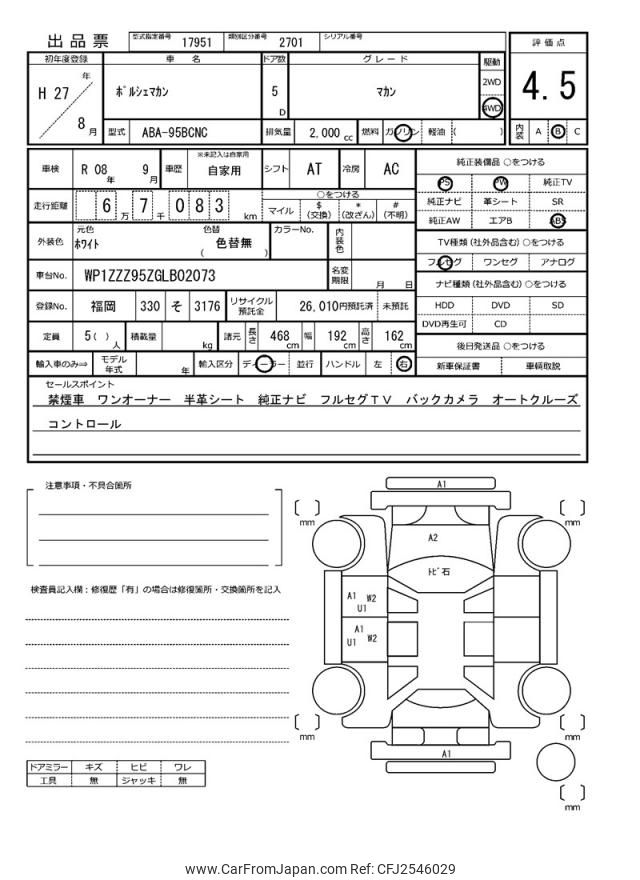 出品票 型式指定番号 17951 類別区分番号 2701 シリアル番号
初年度登録 車名 ドア数 グレード 駆動 評価点
H 27 年 8 月 ﾎﾟﾙｼｪﾏｶﾝ 5 D マカン 2WD 4WD 4.5
型式 ABA-95BCNC 排気量 2,000 cc 燃料 ガソリン 軽油 ( ) 内装 A B C
車検 R 08 年 9 月 車歴 ※未記入は自家用 自家用 シフト AT 冷房 AC
純正装備品 ○をつける
PS PW 純正TV
走行距離 6 万 7 千 0 8 3 km ○をつける マイル $ (交換) * (改ざん) # (不明)
純正ナビ 革シート SR
純正AW エアB ABS
外装色 元色 ﾎﾜｲﾄ 色替 ( 色替無 ) カラーNo. 内装色
TV種類 (社外品含む) ○をつける
フルセグ ワンセグ アナログ
車台No. WP1ZZZ95ZGLB02073 名変期限 月 日
ナビ種類 (社外品含む) ○をつける
登録No. 福岡 330 そ 3176 リサイクル預託金 26,010円預託済 未預託
HDD DVD SD
DVD再生可 CD
定員 5( ) 人 積載量 kg 諸元 長さ 468 cm 幅 192 cm 高さ 162 cm
後日発送品 ○をつける
輸入車のみ⇒ モデル年式 年 輸入区分 ディーラー 並行 ハンドル 左 右
新車保証書 車輌取説
セールスポイント
禁煙車 ワンオーナー 半革シート 純正ナビ フルセグTV バックカメラ オートクルーズ
コントロール
注意事項・不具合箇所
検査員記入欄：修復歴「有」の場合は修復箇所・交換箇所を記入
A1
mm mm
A2
ﾄﾋﾞ石
A1 W2
U1
A1
U1 W2
mm mm
A1
mm
ドアミラー キズ ヒビ ワレ
工具 無 ジャッキ 無
www.CarFromJapan.com Ref: CFJ2546029